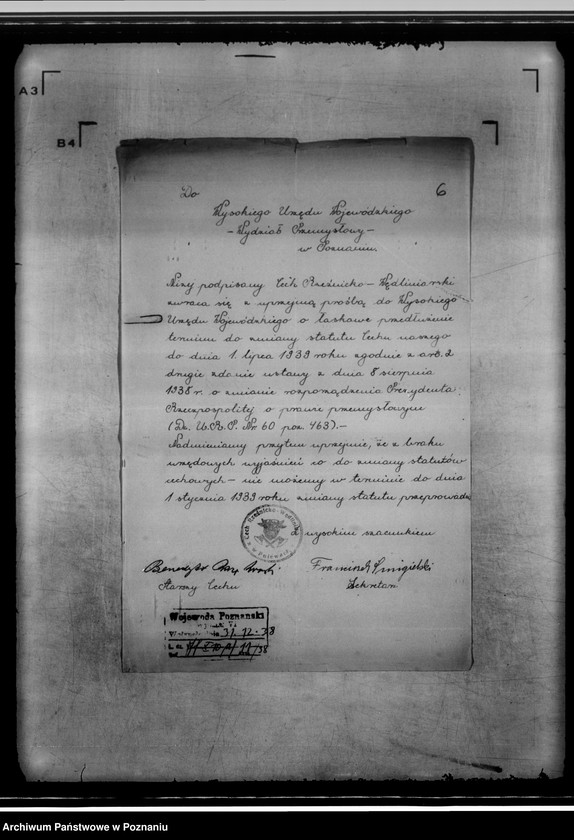 A3
B4
6
Do
Wysokiego Urzędu Wojewódzkiego
- Wydział Przemysłowy -
w Poznaniu.
Niżej podpisany Cech Rzeźnicko - Wędliniarski
zwraca się z uprzejmą prośbą do Wysokiego
Urzędu Wojewódzkiego o łaskawe przedłużenie
terminu do zmiany statutu Cechu naszego
do dnia 1 lipca 1939 roku zgodnie z art. 2
drugie zdanie ustawy z dnia 8 sierpnia
1938 r. o zmianie rozporządzenia Prezydenta
Rzeczpospolitej o prawie przemysłowym
(Dz. U. R. P. Nr 60 poz. 463).-
Nadmieniamy przytem uprzejmie, że z braku
urzędowych wyjaśnień co do zmiany statutów
cechowych - nie możemy w terminie do dnia
1 stycznia 1939 roku zmiany statutu przeprowadzić
wysokim szacunkiem
Cech Rzeźnicko-Wędliniarski
Franciszek Śmigielski
Starszy Cechu
Sekretarz
Wojewoda Poznański
31. 12. 38
Archiwum Państwowe w Poznaniu